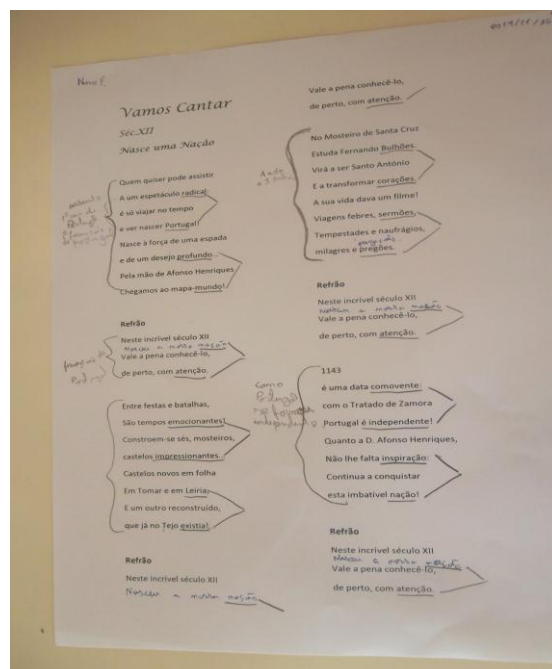 Nome:
Vamos Cantar
Séc.XII
Nasce uma Nação
Quem quiser pode assistir
A um espetáculo radical:
é só viajar no tempo
e ver nascer Portugal!
Nasce à força de uma espada
e de um desejo profundo...
Pela mão de Afonso Henriques
Chegamos ao mapa-mundo!
Refrão
Neste incrível século XII
Nasceu a nossa nação
Vale a pena conhecê-lo,
de perto, com atenção.
Entre festas e batalhas,
São tempos emocionantes!
Constroem-se sés, mosteiros,
castelos impressionantes...
Castelos novos em folha
Em Tomar e em Leiria;
E um outro reconstruído,
que já no Tejo existia!
Refrão
Neste incrível século XII
Nasceu a nossa nação
Vale a pena conhecê-lo,
de perto, com atenção.
No Mosteiro de Santa Cruz
Estuda Fernando Bulhões.
Virá a ser Santo António
E a transformar corações.
A sua vida dava um filme!
Viagens febres, sermões,
Tempestades e naufrágios,
milagres e pregões.
Refrão
Neste incrível século XII
Nasceu a nossa nação
Vale a pena conhecê-lo,
de perto, com atenção.
Como
Portugal
se formou
independente
1143
é uma data comovente:
com o Tratado de Zamora
Portugal é independente!
Quanto a D. Afonso Henriques,
Não lhe falta inspiração:
Continua a conquistar
esta imbatível nação!
Refrão
Neste incrível século XII
Nasceu a nossa nação
Vale a pena conhecê-lo,
de perto, com atenção.